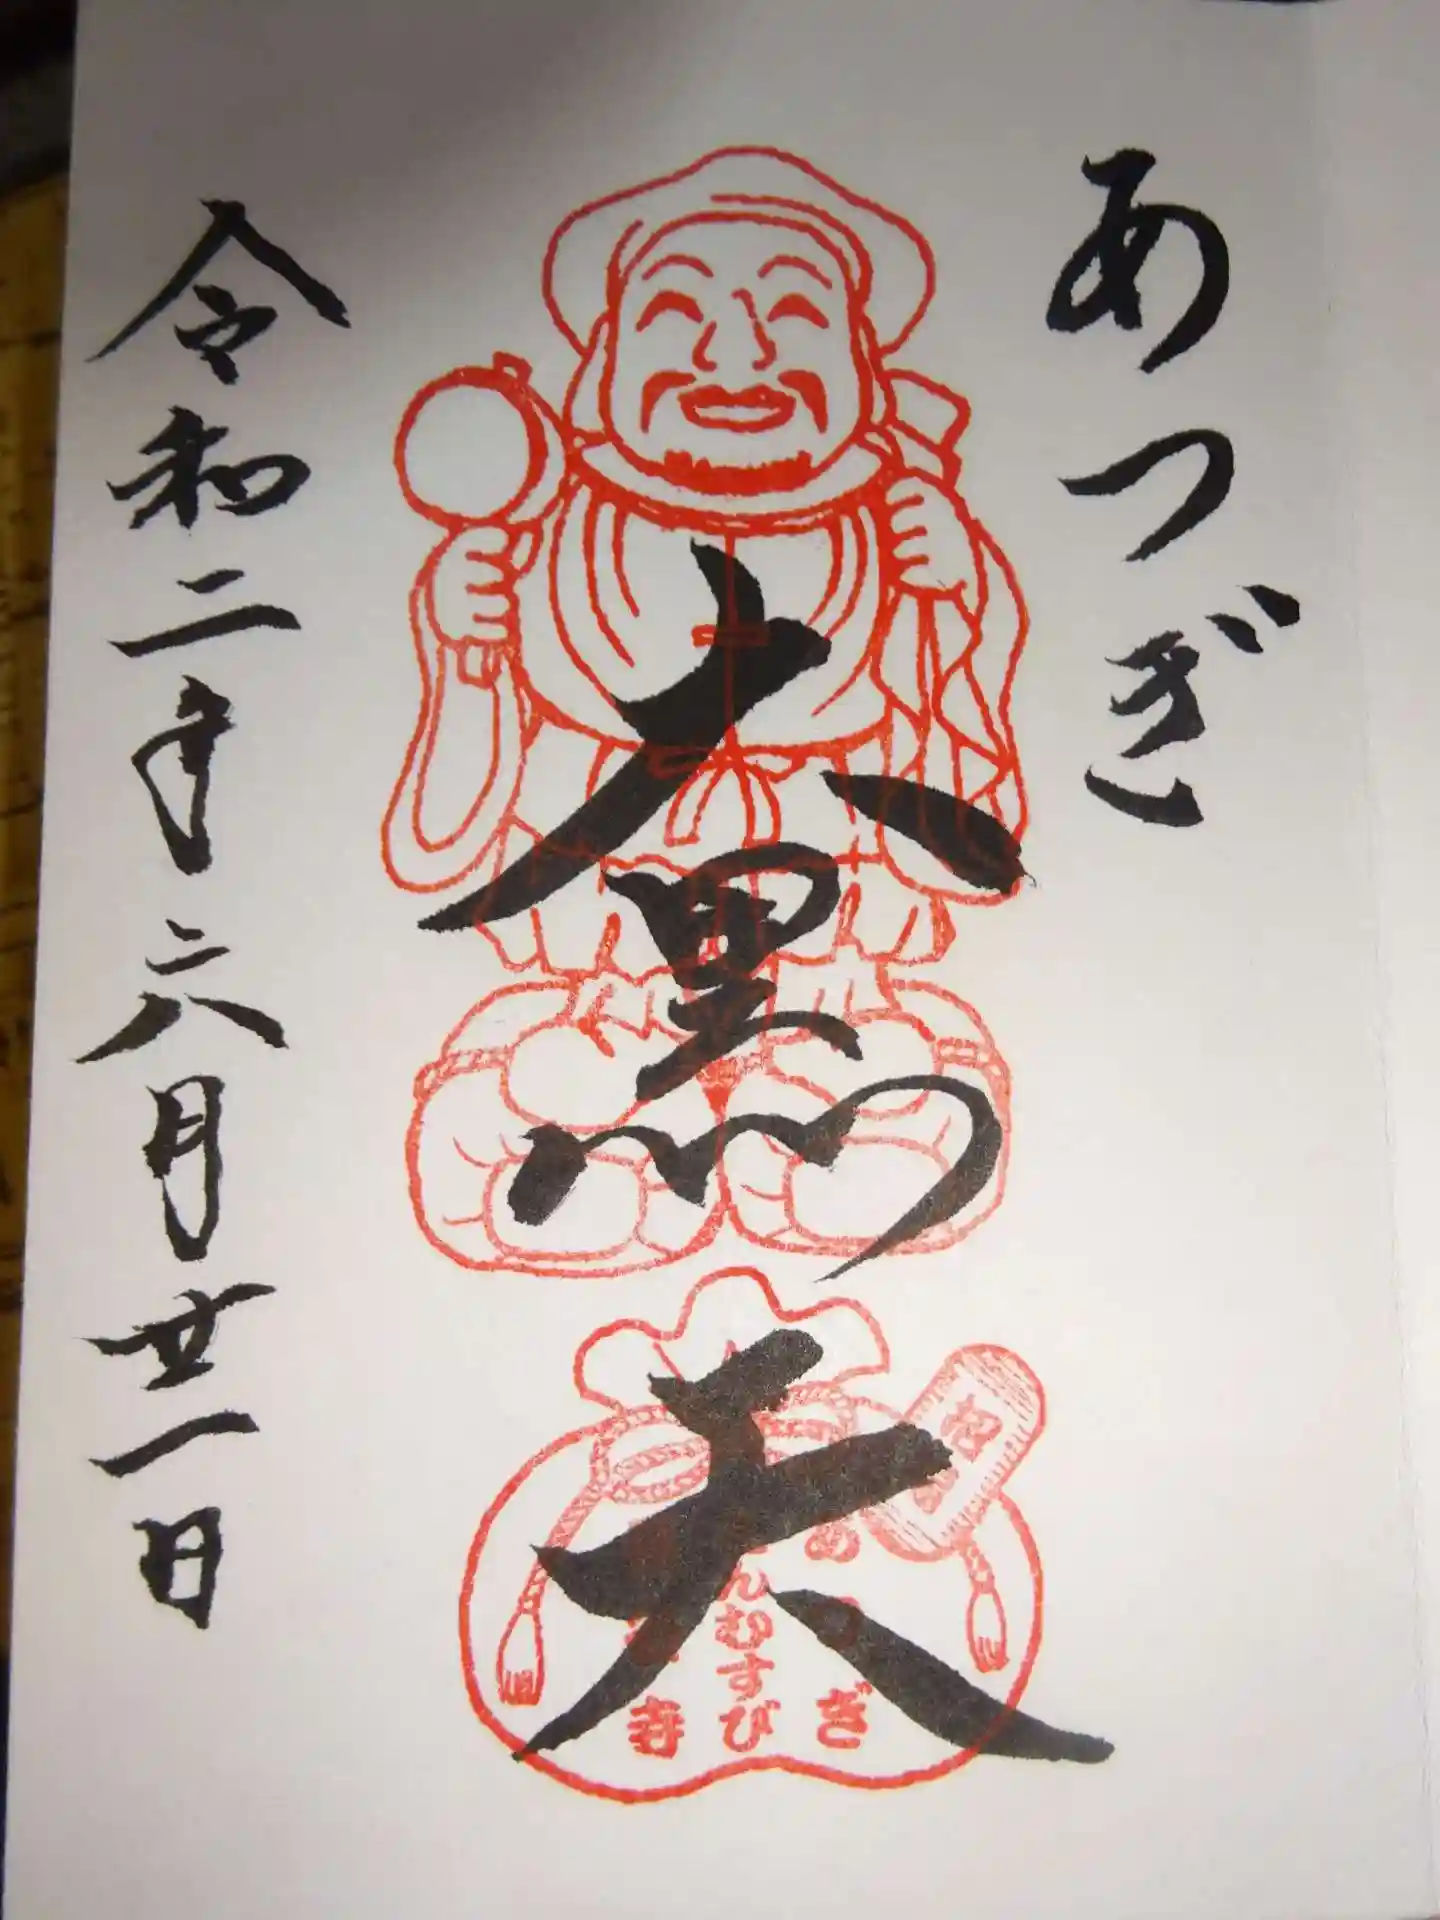 あつぎ
大黒天
令和二年六月廿一日
招
あつぎ
んむすび
寺